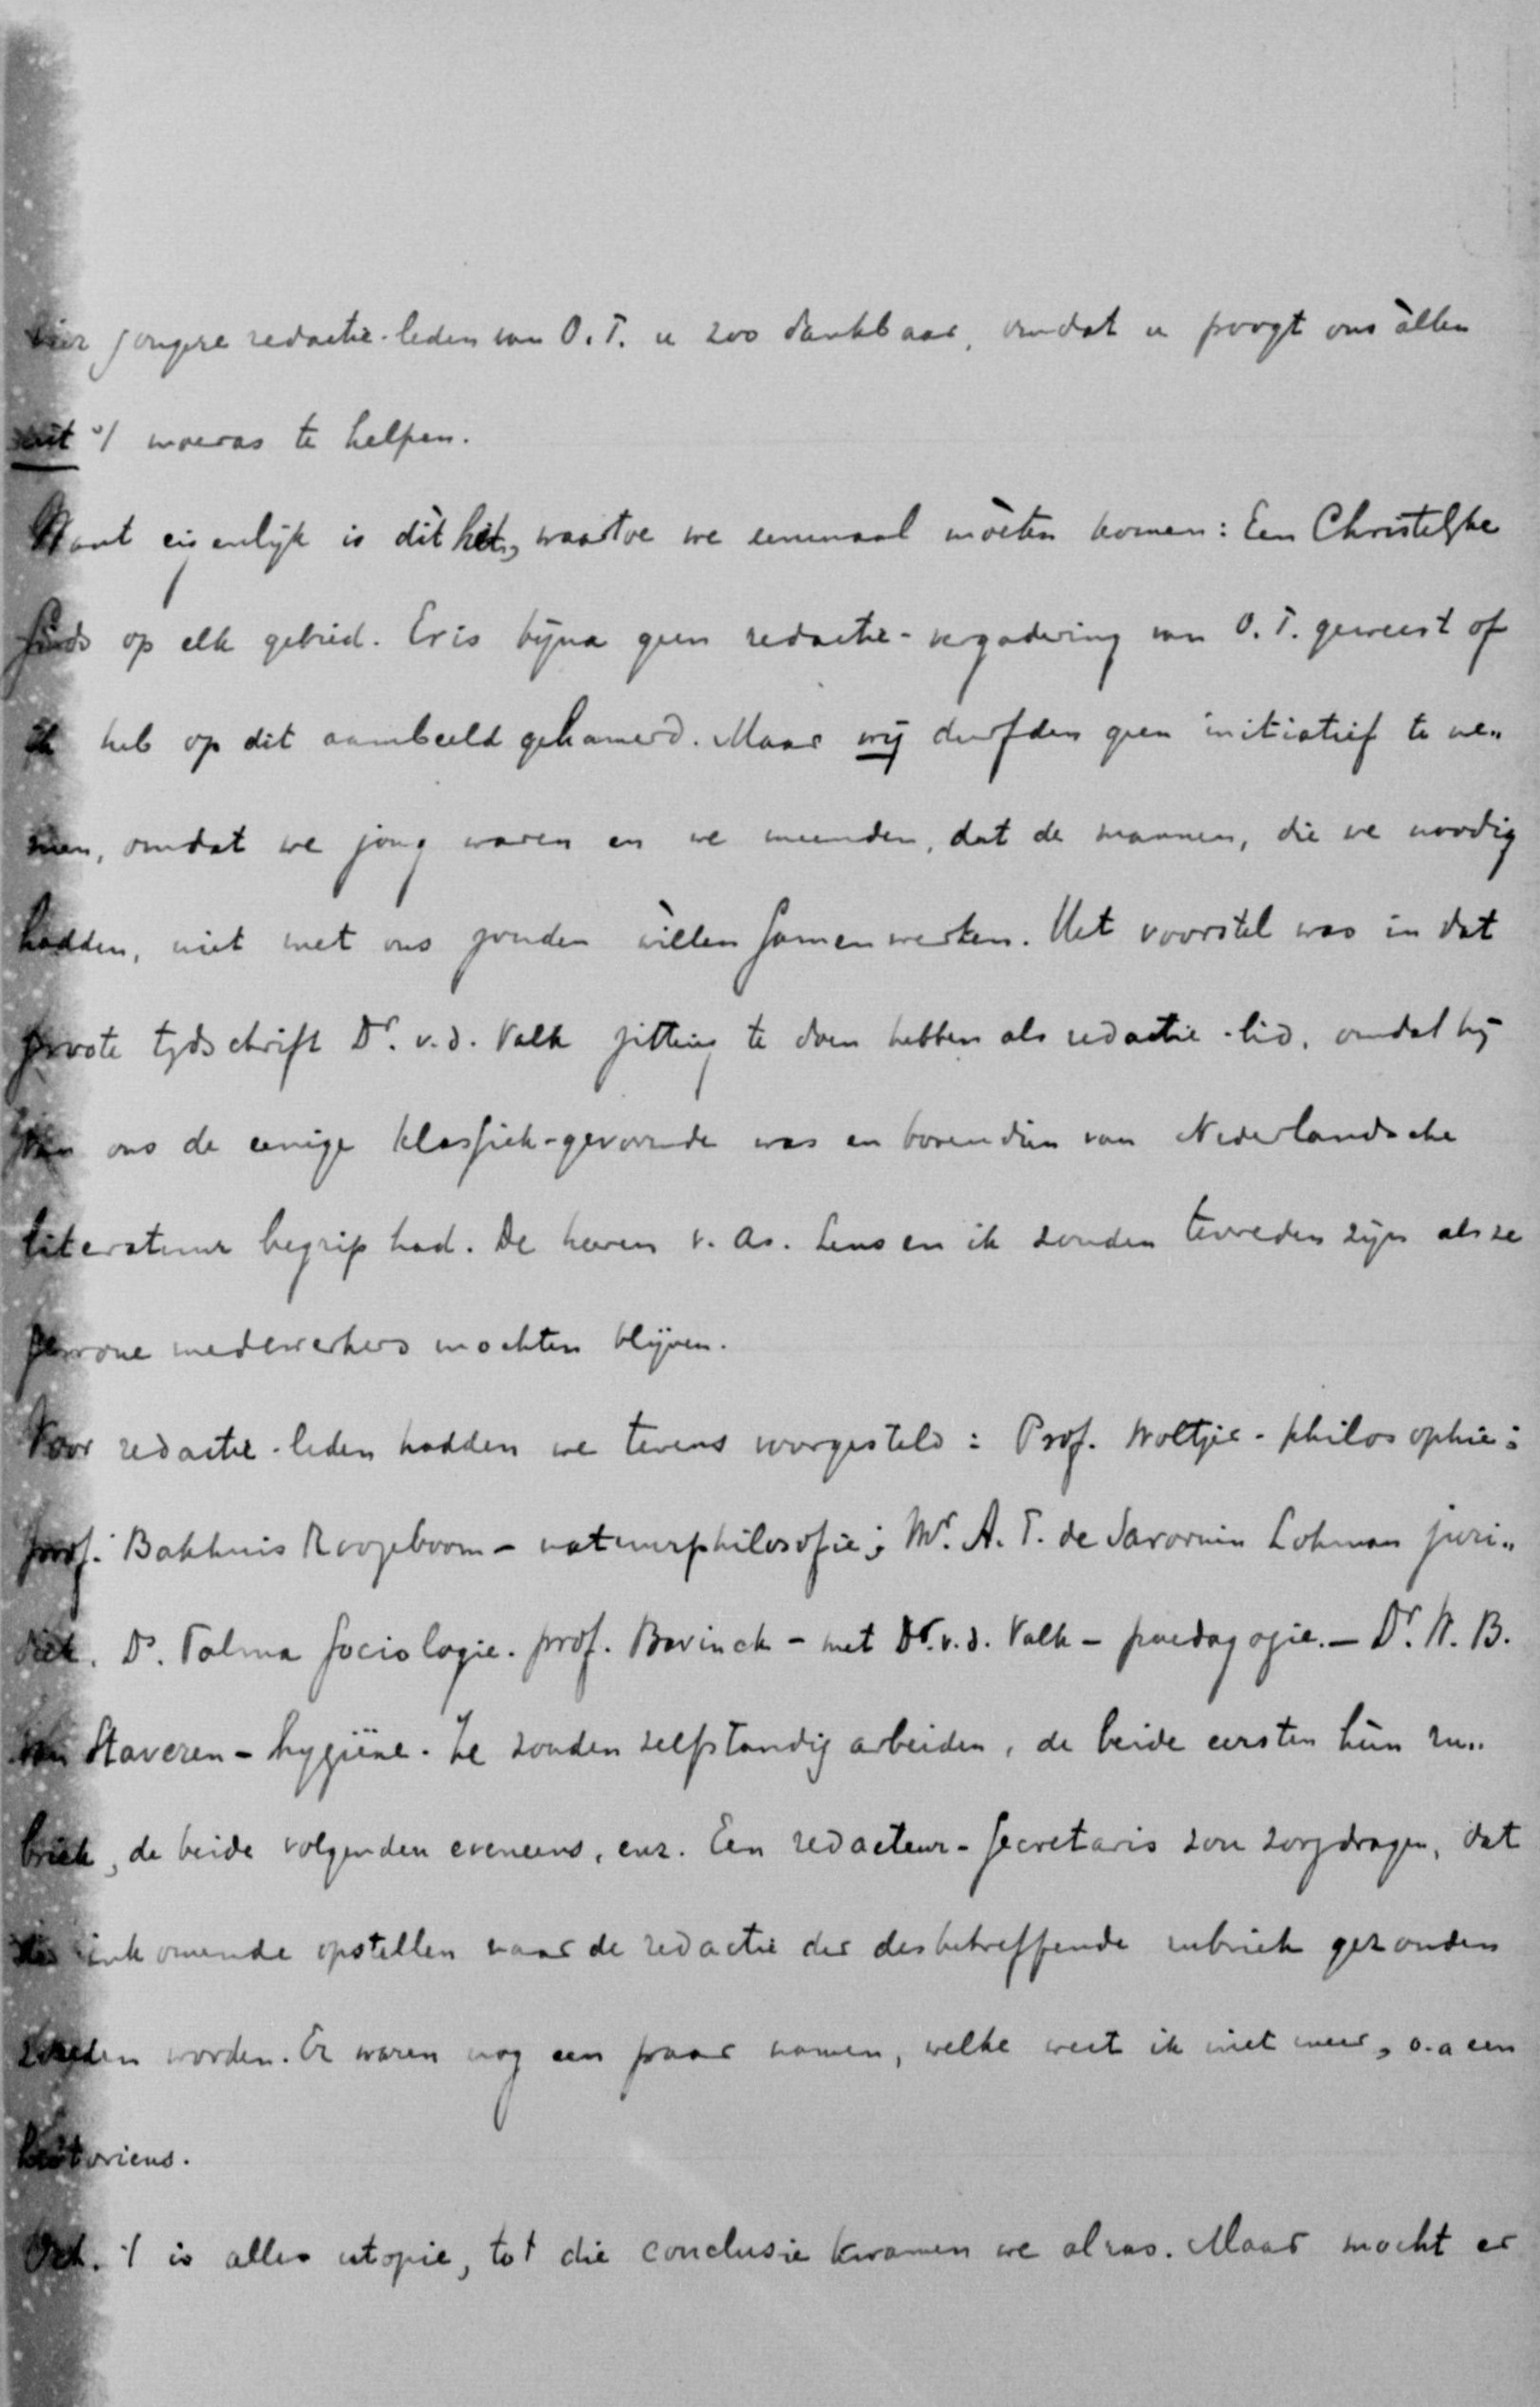 vier jongere redactie-leden van O.T. u zoo dankbaar, omdat u poogt ons àllen
uit 't moeras te helpen.
Want eigenlijk is dìt hèt, waartoe we eenmaal mòeten komen: Een Christelijke
Gids op elk gebied. Er is bijna geen redactie-vergadering van O.T. geweest of
ik heb op dit aambeeld gehamerd. Maar wij durfden geen initiatief te ne„
men, omdat we jong waren en we meenden, dat de mannen, die we noodig
hadden, niet met ons zouden wìllen samenwerken. Het voorstel was in dat
groote tijdschrift Dr. v.d. Valk zitting te doen hebben als redactie-lid, omdat hij
van ons de eenige klassiek-gevormde was en bovendien van Nederlandsche
literatuur begrip had. De heeren v. As. Lens en ik zouden tevreden zijn als ze
gewone medewerkers mochten blijven.
Voor redactie-leden hadden we tevens voorgesteld: Prof. Woltjer - philosophie;
prof. Bakhuis Roozeboom - natuurphilosofie; Mr. A. F. de Savornin Lohman juri„
diek. Ds. Talma sociologie. prof. Bavinck - met Dr. v.d. Valk - paedagogie. - Dr. W. B.
van Staveren - hygiëne. Ze zouden zelfstandig arbeiden, de beide eersten hùn ru„
briek, de beide volgenden eveneens, enz. Een redacteur-secretaris zou zorgdragen, dat
de inkomende opstellen naar de redactie der desbetreffende rubriek gezonden
zouden worden. Er waren nog een paar namen, welke weet ik niet meer, o.a een
historicus.
Och. 't is alles utopie, tot die conclusie kwamen we alras. Maar mocht er